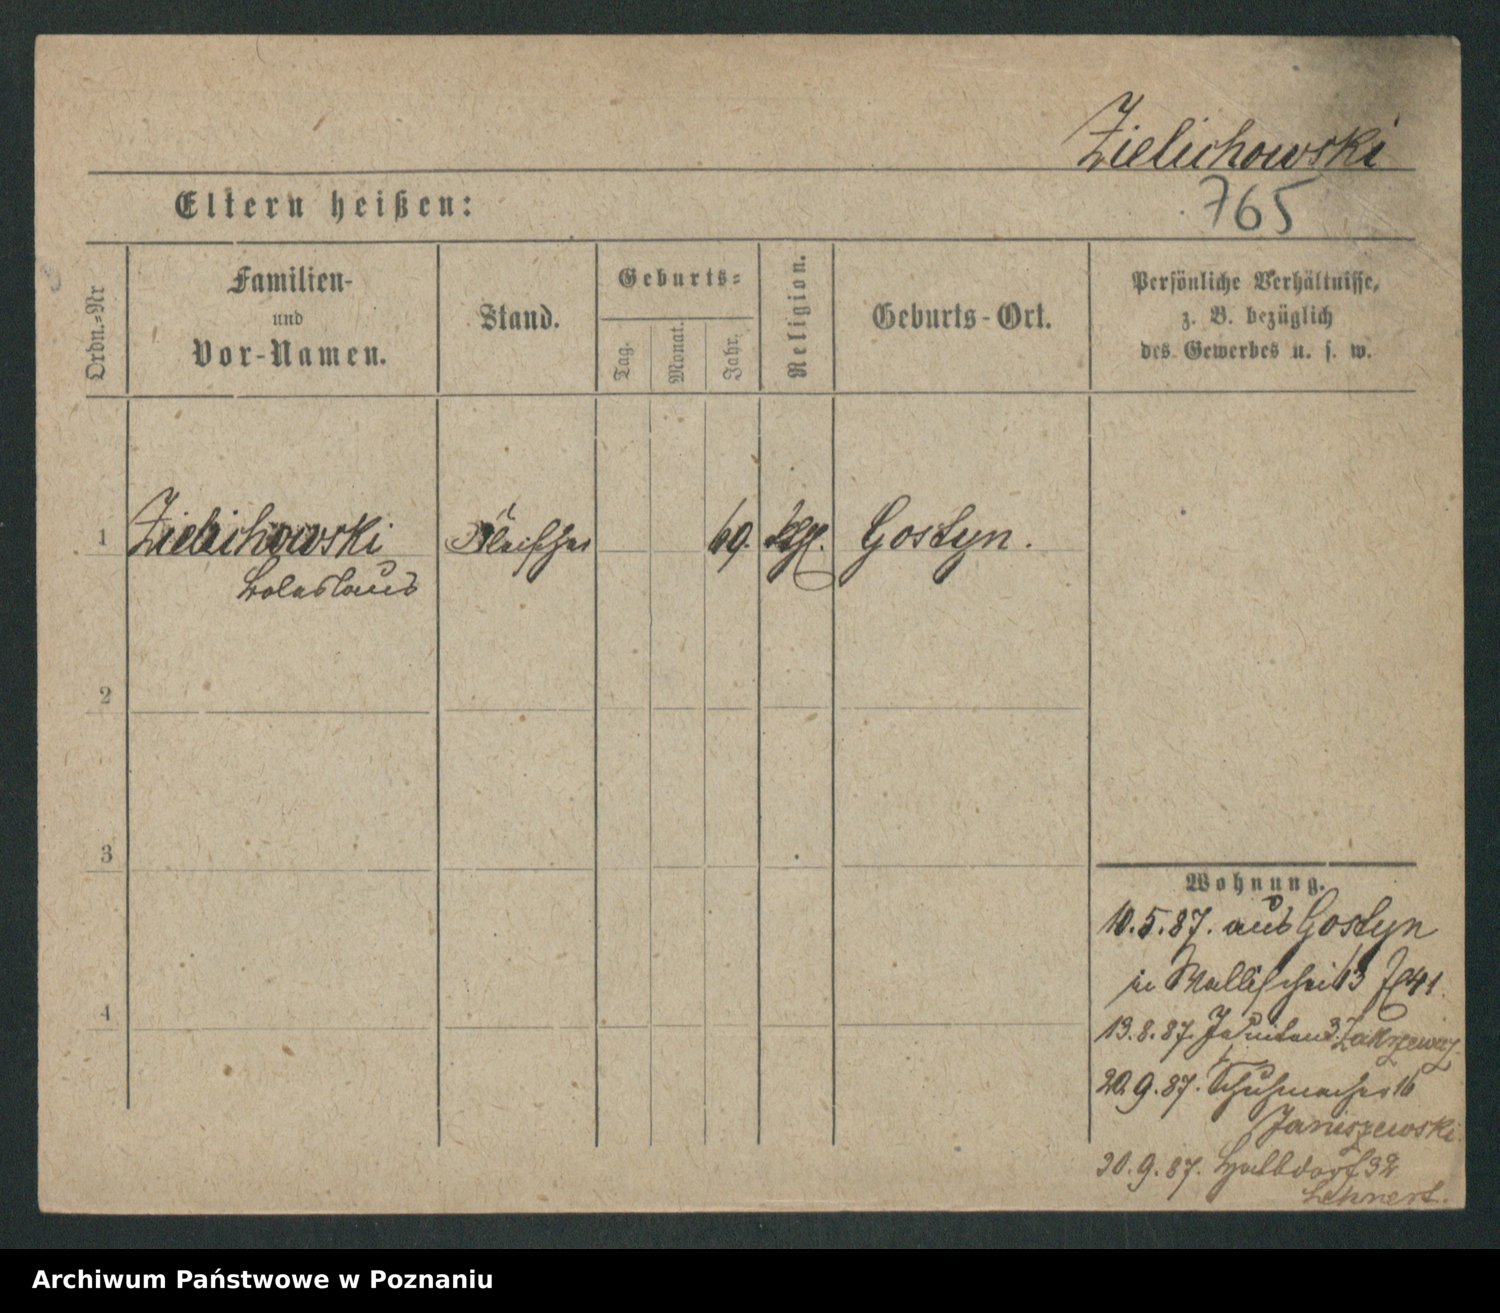 Zielichowski
765
Eltern heißen:
Ordn.-Nr
Familien-
und
Vor-Namen.
Stand.
Geburts-
Tag.
Monat.
Jahr.
Religion.
Geburts-Ort.
Persönliche Verhältnisse,
z. B. bezüglich
des Gewerbes u. s. w.
1
Zielichowski
Boleslaus
Fleischer
69.
Gostyn.
2
3
4
Wohnung.
10.5.87. aus Gostyn
in Wallischei 13
13.8.87. Jesuitenstr. Zakrzewicz
20.9.87. Schuhmacher 16
Janiszewski
30.9.87. Halbdorf 32
Lehnert.
Archiwum Państwowe w Poznaniu